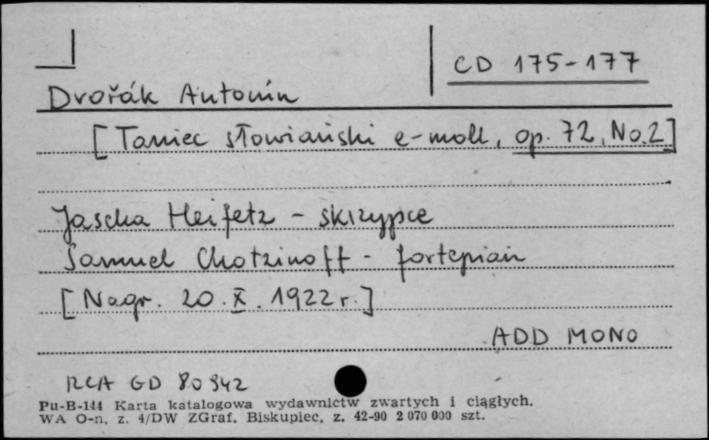 CD 175-177
Dvořák Antonín
[Taniec słowiański e-moll, op. 72, No. 2]
Jascha Heifetz - skrzypce
Samuel Chotzinoff - fortepian
[Nagr. 20. X. 1922 r.]
ADD MONO
RCA GD 80942
Pu-B-144 Karta katalogowa wydawnictw zwartych i ciągłych.
WA O-n. z. 4/DW ZGraf. Biskupiec, z. 42-90 2 070 000 szt.